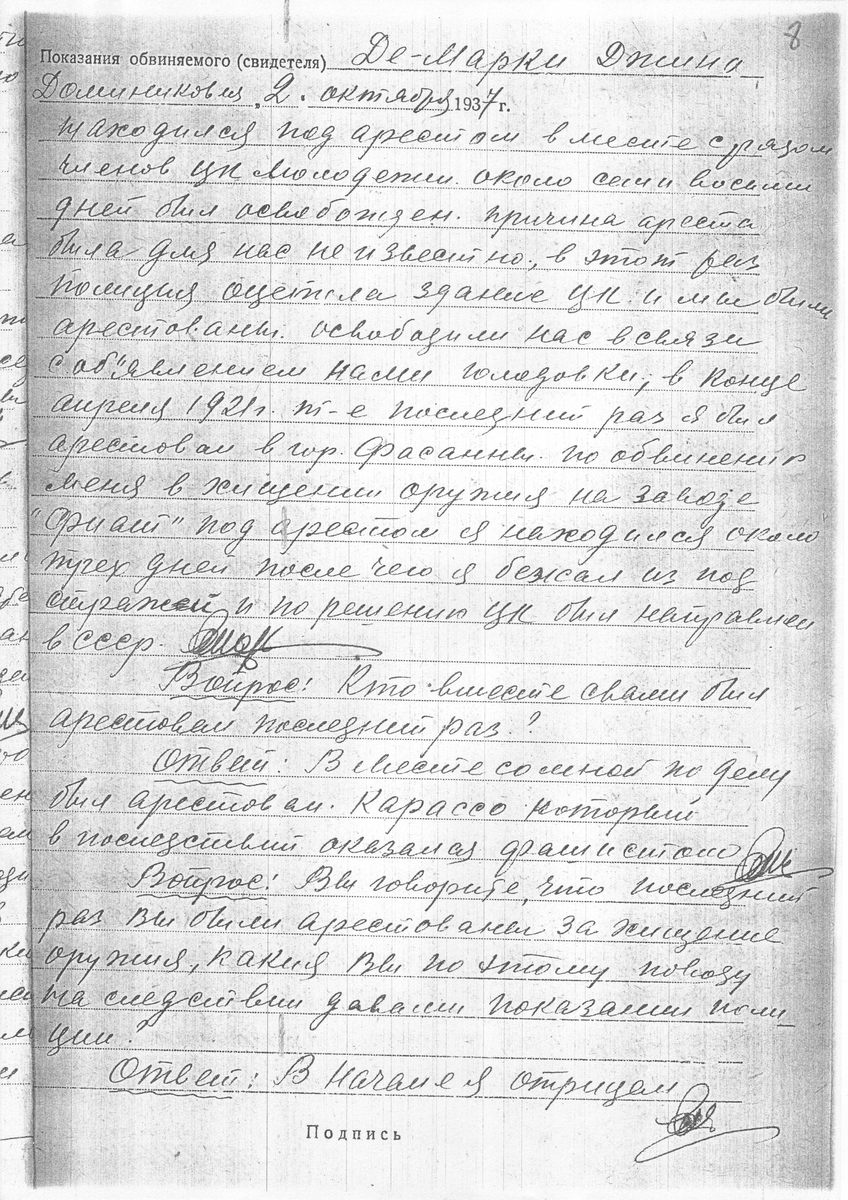 8
Показания обвиняемого (свидетеля) Де-Марки Джино
Доминикович „2. октября 1937 г.
находился под арестом вместе с рядом
членов ЦК молодежи. около семи восьми
дней был освобожден. причина ареста
была для нас не известно., в этот раз
полиция оцепила здание ЦК. и мы были
арестованы. освободили нас в связи
с об"явлением нами голодовки; в конце
апреля 1921 г. т-е последний раз я был
арестован в гор. Фасанны. по обвинению
меня в хищении оружия на заводе
"Фиат" под арестом я находился около
трех дней после чего я бежал из под
стражей и по решению ЦК был направлен
в СССР.
Вопрос: Кто вместе с вами был
арестован последний раз?
Ответ: Вместе со мной по делу
был арестован. Карассо который
в последствии оказался фашистом
Вопрос: Вы говорите, что последний
раз Вы были арестованы за хищение
оружия, какия Вы по этому поводу
на следствии давали показании поли-
ции?
Ответ: В начале я отрицал
Подпись